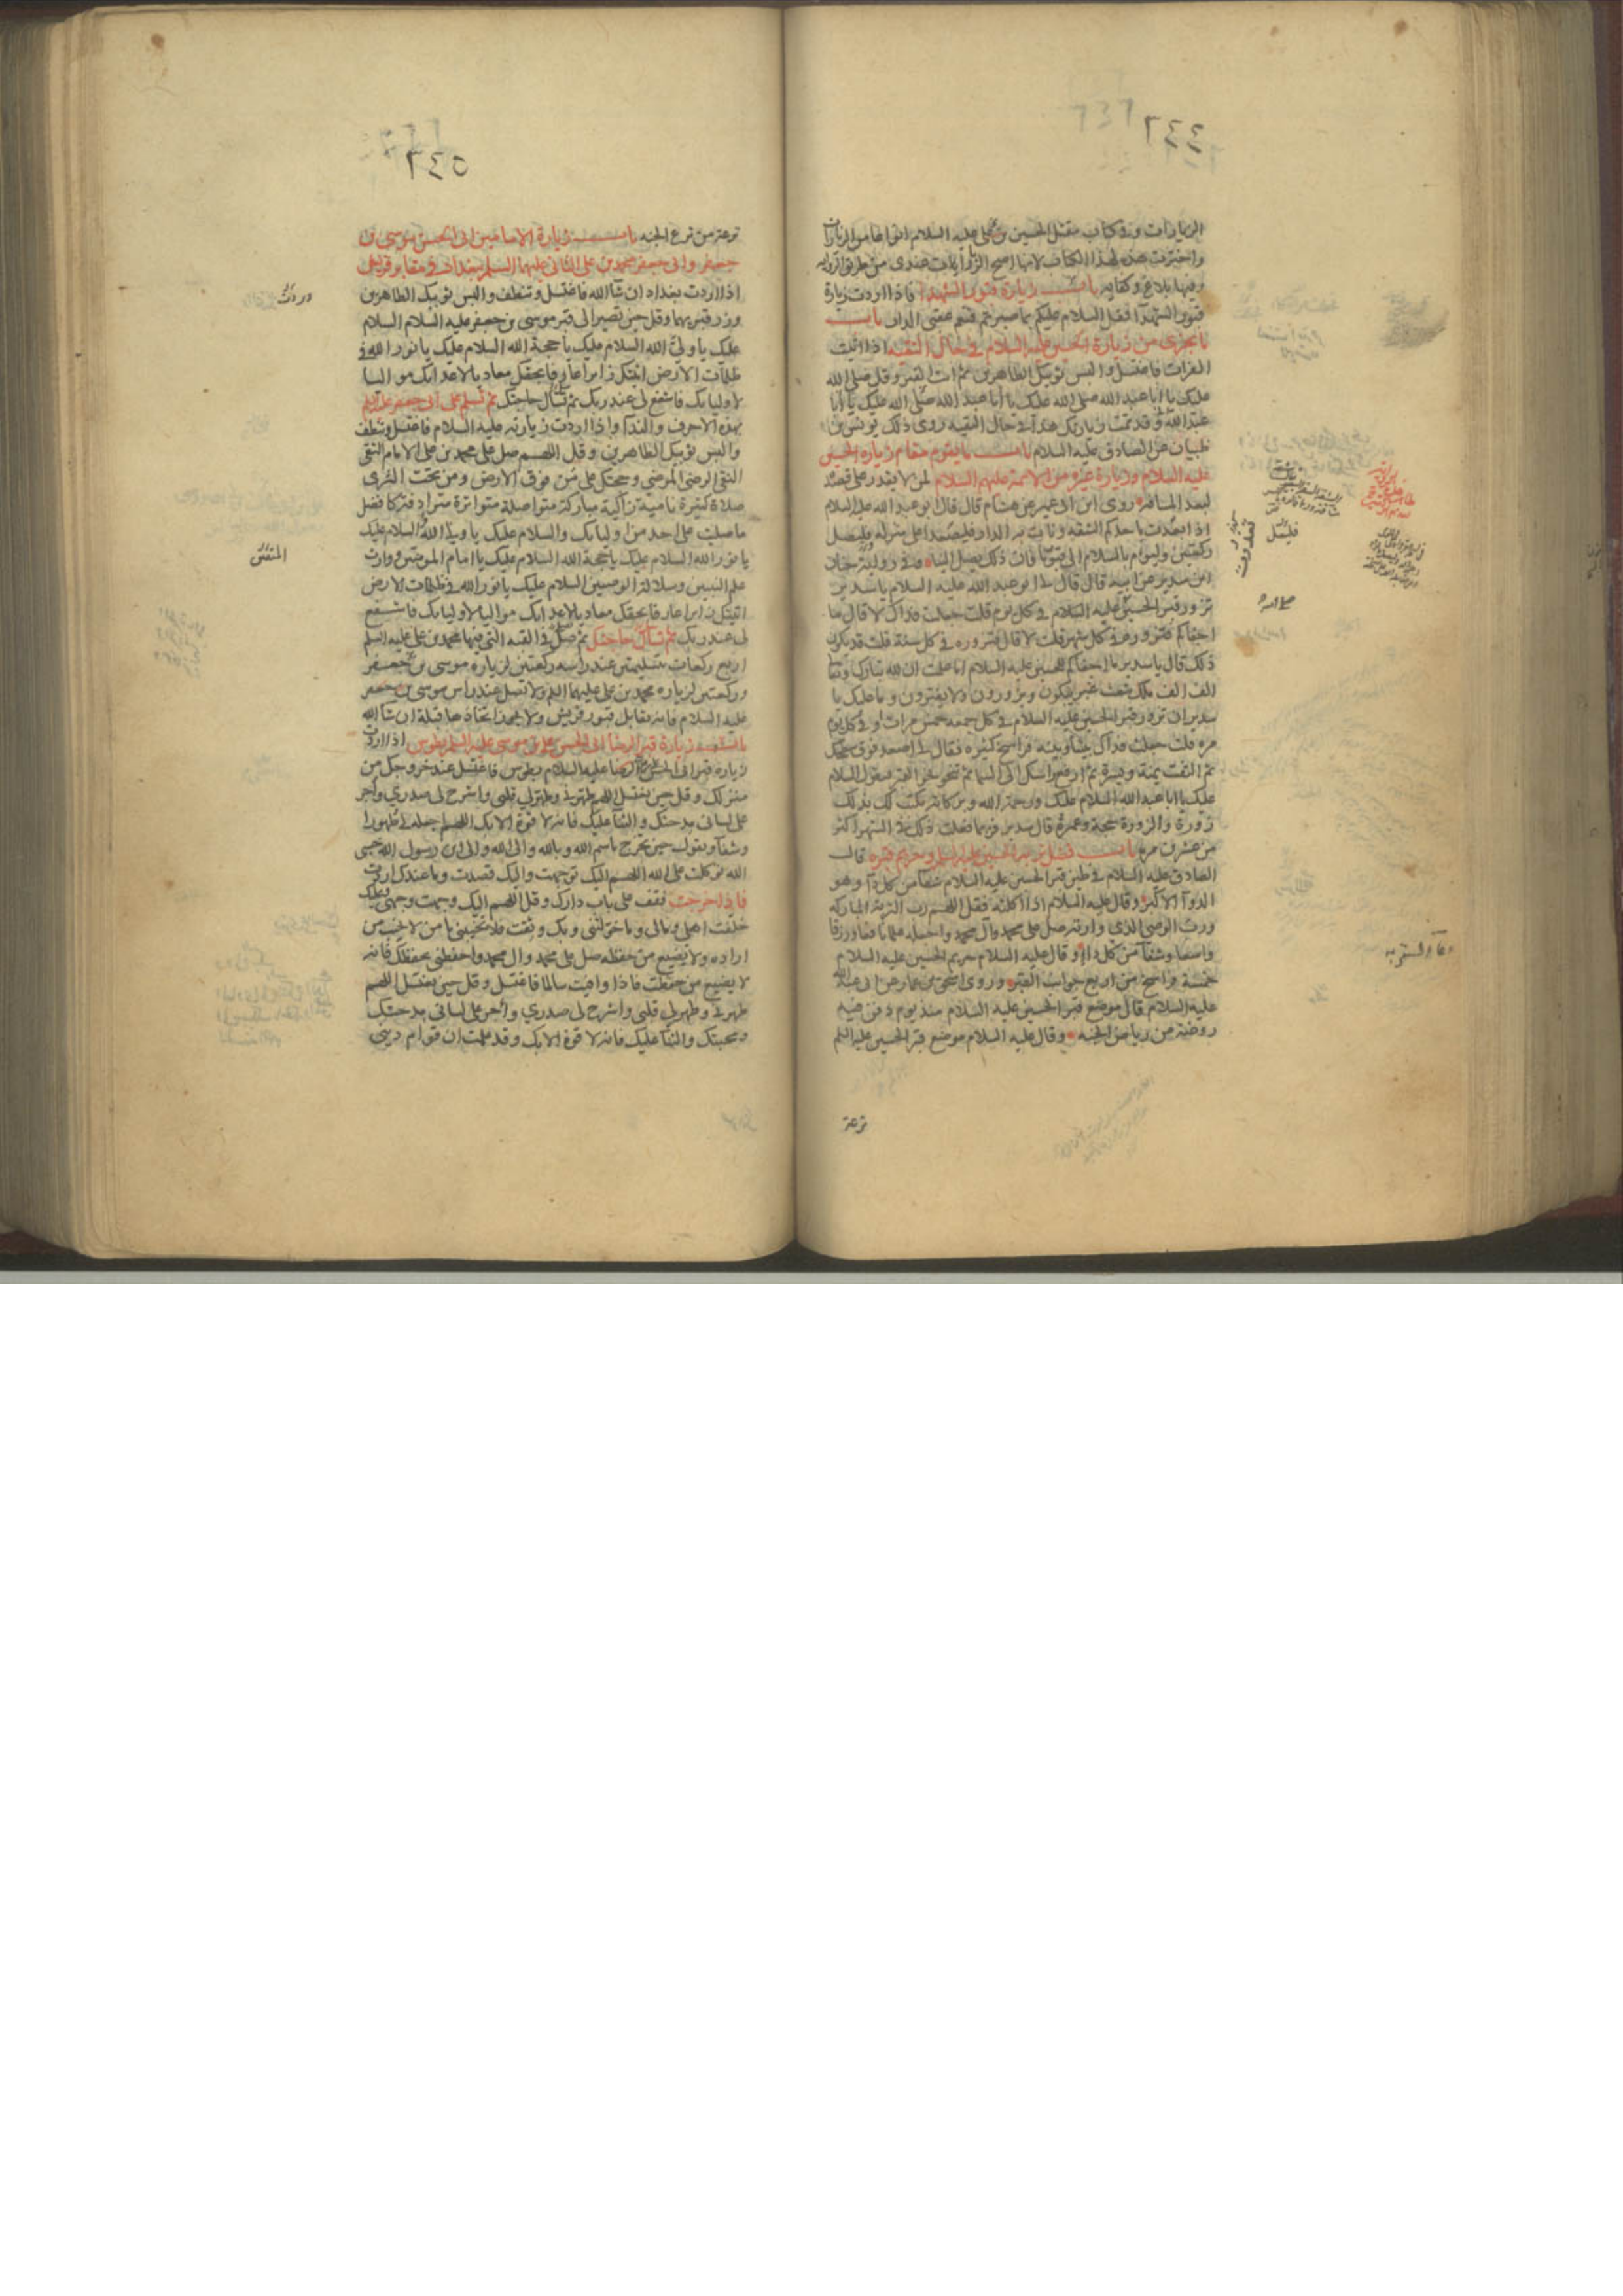 ٦٤٤
الزيارات وفي كتاب مقتل الحسين بن علي عليه السلام انواعا من الزيارات
واخترت هذه لهذا الكتاب لانها اصح الزيارات عندي من طريق الرواية
وفيها بلاغ وكفاية باب زيارة قبور الشهدا فاذا اردت زيارة
قبور الشهدآ فقل السلام عليكم بما صبرتم فنعم عقبى الدار باب
ما يجزى من زيارة الحسين عليه السلام في حال التقية اذا اتيت
الفرات فاغتسل والبس ثوبيك الطاهرين ثم ائت القبر وقل صلى الله
عليك يا ابا عبد الله صلى الله عليك يا ابا عبد الله صلى الله عليك يا ابا
عبد الله وقد تمت زيارتك هذا في حال التقية روى ذلك يونس بن
ظبيان عن الصادق عليه السلام باب ما يقوم مقام زيارة الحسين
عليه السلام وزيارة غيره من الائمة عليهم السلام لمن لا يقدر على قصده
لبعد المسافة روى ابن ابي عمير عن هشام قال قال ابو عبد الله عليه السلام
اذا بعدت باحدكم الشقة ونأت به الدار فليصعد اعلى منزله وليصل
ركعتين وليؤم بالسلام الى قبورنا فان ذلك يصل الينا وفي رواية حنان
ابن سدير عن ابيه قال قال لي ابو عبد الله عليه السلام يا سدير
تزور قبر الحسين عليه السلام في كل يوم قلت جعلت فداك لا قال ما
اجفاكم فتزوره في كل شهر قلت لا قال فتزوره في كل سنة قلت قد يكون
ذلك قال يا سدير ما اجفاكم للحسين عليه السلام اما علمت ان لله تبارك وتعا
الف الف ملك شعث غبر يبكون ويزورون ولا يفترون وما عليك يا
سدير ان تزور قبر الحسين عليه السلام في كل جمعة خمس مرات او في كل يوم
مرة قلت جعلت فداك بيننا وبينه فراسخ كثيرة فقال لي اصعد فوق سطحك
ثم التفت يمنة ويسرة ثم ارفع راسك الى السما ثم تنحو نحو القبر فتقول السلام
عليك يا ابا عبد الله السلام عليك ورحمة الله وبركاته تكتب لك بذلك
زورة والزورة حجة وعمرة قال سدير فربما فعلت ذلك في الشهر اكثر
من عشرين مرة باب فضل تربة الحسين عليه السلم وحريم قبره قال
الصادق عليه السلام في طين قبر الحسين عليه السلام شفآ من كل دآ وهو
الدوآ الاكبر وقال عليه السلام اذا اكلته فقل اللهم رب التربة المباركة
ورب الوصي الذي وارته صل على محمد وآل محمد واجعله علما نافعا ورزقا
واسعا وشفآ من كل دآ وقال عليه السلام حريم الحسين عليه السلام
خمسة فراسخ من اربع جوانب القبر وروى اسحق بن عمار عن ابي عبد الله
عليه السلام قال موضع قبر الحسين عليه السلام منذ يوم دفن فيه
روضة من رياض الجنة وقال عليه السلام موضع قبر الحسين عليه السلم
ترعة
٦٤٥
ترعة من ترع الجنة باب زيارة الامامين ابي الحسن موسى بن
جعفر وابي جعفر محمد بن علي الثاني عليهما السلم ببغداد في مقابر قريش
اذا اردت بغداد ان شآ الله فاغتسل وتنظف والبس ثوبيك الطاهرين
وزر قبريهما وقل حين تصير الى قبر موسى بن جعفر عليه السلام السلام
عليك يا ولي الله السلام عليك يا حجة الله السلام عليك يا نور الله في
ظلمات الارض اتيتك زائرا عارفا بحقك معاديا لاعدائك مواليا
لاوليائك فاشفع لي عند ربك ثم تسأل حاجتك ثم تسلم على ابي جعفر عليه السلم
بهذه الاحرف والندآ واذا اردت زيارته عليه السلام فاغتسل وتنظف
والبس ثوبيك الطاهرين وقل اللهم صل على محمد بن علي الامام التقي
النقي الرضي المرضي وحجتك على من فوق الارض ومن تحت الثرى
صلاة كثيرة نامية زاكية مباركة متواصلة متواترة مترادفة كافضل
ما صليت على احد من اوليائك والسلام عليك يا ولي الله السلام عليك
يا نور الله السلام عليك يا حجة الله السلام عليك يا امام المؤمنين ووارث
علم النبيين وسلالة الوصيين السلام عليك يا نور الله في ظلمات الارض
اتيتك زائرا عارفا بحقك معاديا لاعدائك مواليا لاوليائك فاشفع
لي عند ربك ثم تسأل حاجتك ثم صل في القبة التي فيها محمد بن علي عليه السلم
اربع ركعات بتسليمتين عند راسه ركعتين لزيارة موسى بن جعفر
وركعتين لزيارة محمد بن علي عليهما السلم ولا تصل عند راس موسى بن جعفر
عليه السلام فانه يقابل قبور قريش ولا يجوز اتخاذها قبلة ان شآ الله
باب زيارة قبر الرضا ابي الحسن علي بن موسى عليه السلم بطوس اذا اردت
زيارة قبر ابي الحسن الرضا عليه السلام بطوس فاغتسل عند خروجك من
منزلك وقل حين تغتسل اللهم طهرني وطهر لي قلبي واشرح لي صدري واجر
على لساني مدحتك والثنآ عليك فانه لا قوة الا بك اللهم اجعله لي طهورا
وشفآ وتقول حين تخرج باسم الله وبالله والى الله والى ابن رسول الله حسبي
الله توكلت على الله اللهم اليك توجهت واليك قصدت وما عندك اردت
فاذا خرجت فقف على باب دارك وقل اللهم اليك وجهت وجهي وعليك
خلفت اهلي ومالي وما خولتني وبك وثقت فلا تخيبني يا من لا يخيب من
اراده ولا يضيع من حفظه صل على محمد وال محمد واحفظني بحفظك فانه
لا يضيع من حفظت فاذا وافيت سالما فاغتسل وقل حين تغتسل اللهم
طهرني وطهر لي قلبي واشرح لي صدري واجر على لساني مدحتك
ومحبتك والثنآ عليك فانه لا قوة الا بك وقد علمت ان قوام ديني